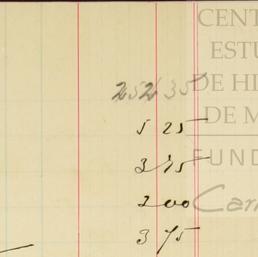 CENT
ESTU
252 35 DE HI
5 25 DE M
3 75 FUND
2 00 Carr
3 75